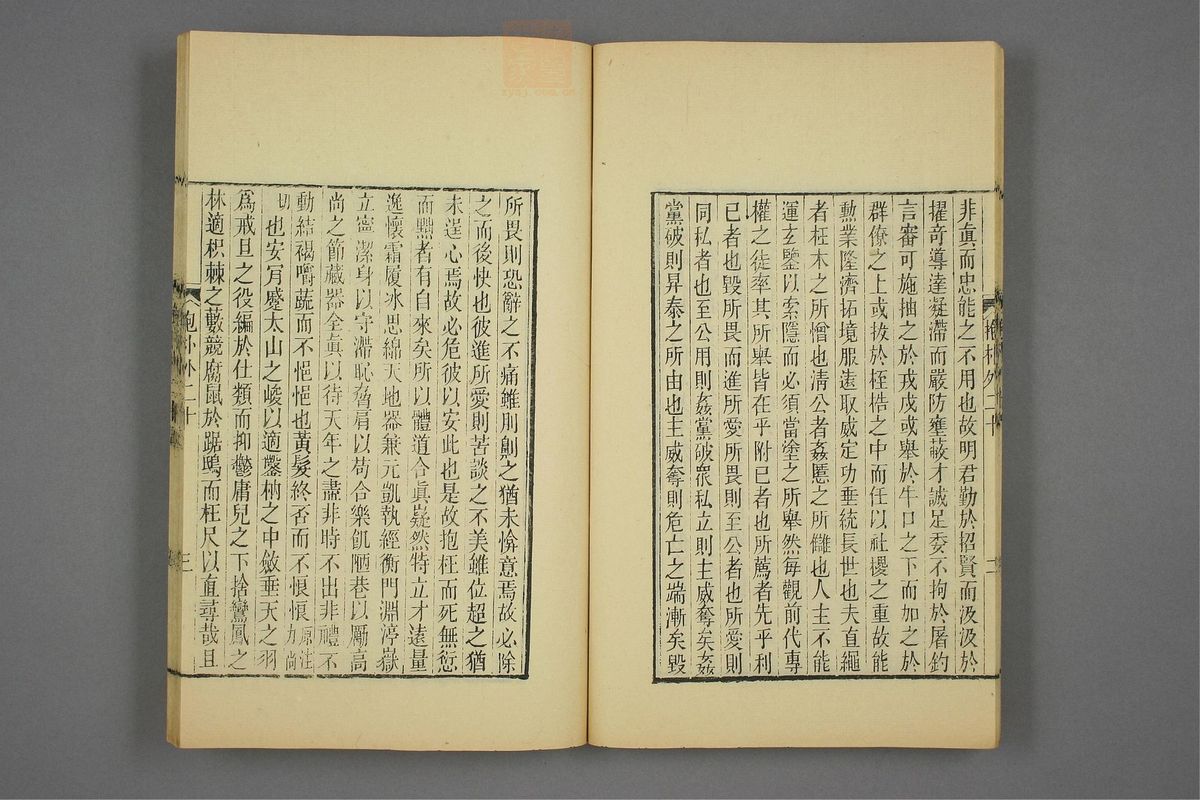 非眞而忠能之不用也故明君勤於招賢而汲汲於
擢奇導達凝滯而嚴防壅蔽才誠足委不拘於屠釣
言審可施抽之於戎戍或舉於牛口之下而加之於
群僚之上或拔於桎梏之中而任以社稷之重故能
勲業隆濟拓境服遠取威定功垂統長世也夫直繩
者枉木之所憎也清公者姦慝之所讎也人主不能
運玄鑒以索隱而必須當塗之所舉然每觀前代專
權之徒率其所舉皆在乎附己者也所薦者先乎利
己者也毀所畏而進所愛所畏則至公者也所愛則
同私者也至公用則姦黨破衆私立則主威奪矣姦
黨破則昇泰之所由也主威奪則危亡之端漸矣毀
所畏則恐辭之不痛雖刖劓之猶未愜意焉故必除
之而後快也彼進所愛則苦談之不美雖位超之猶
未逞心焉故必危彼以安此也是故抱枉而死無愆
而黜者有自來矣所以體道合眞嶷然特立才遠量
逸懷霜履冰思綿天地器兼元凱執經衡門淵渟嶽
立寧潔身以守滯恥脅肩以苟合樂飢陋巷以厲高
尚之節藏器全眞以待天年之盡非時不出非禮不
動結褐嚼蔬而不悒悒也黃髮終否而不悢悢原注力尚
切也安肎蹙太山之峻以適鑿枘之中斂垂天之羽
爲戒旦之役編於仕類而抑鬱庸兒之下捨鸞鳳之
林適枳棘之藪競腐鼠於踞鴟而枉尺以直尋哉且
抱朴外二十
三